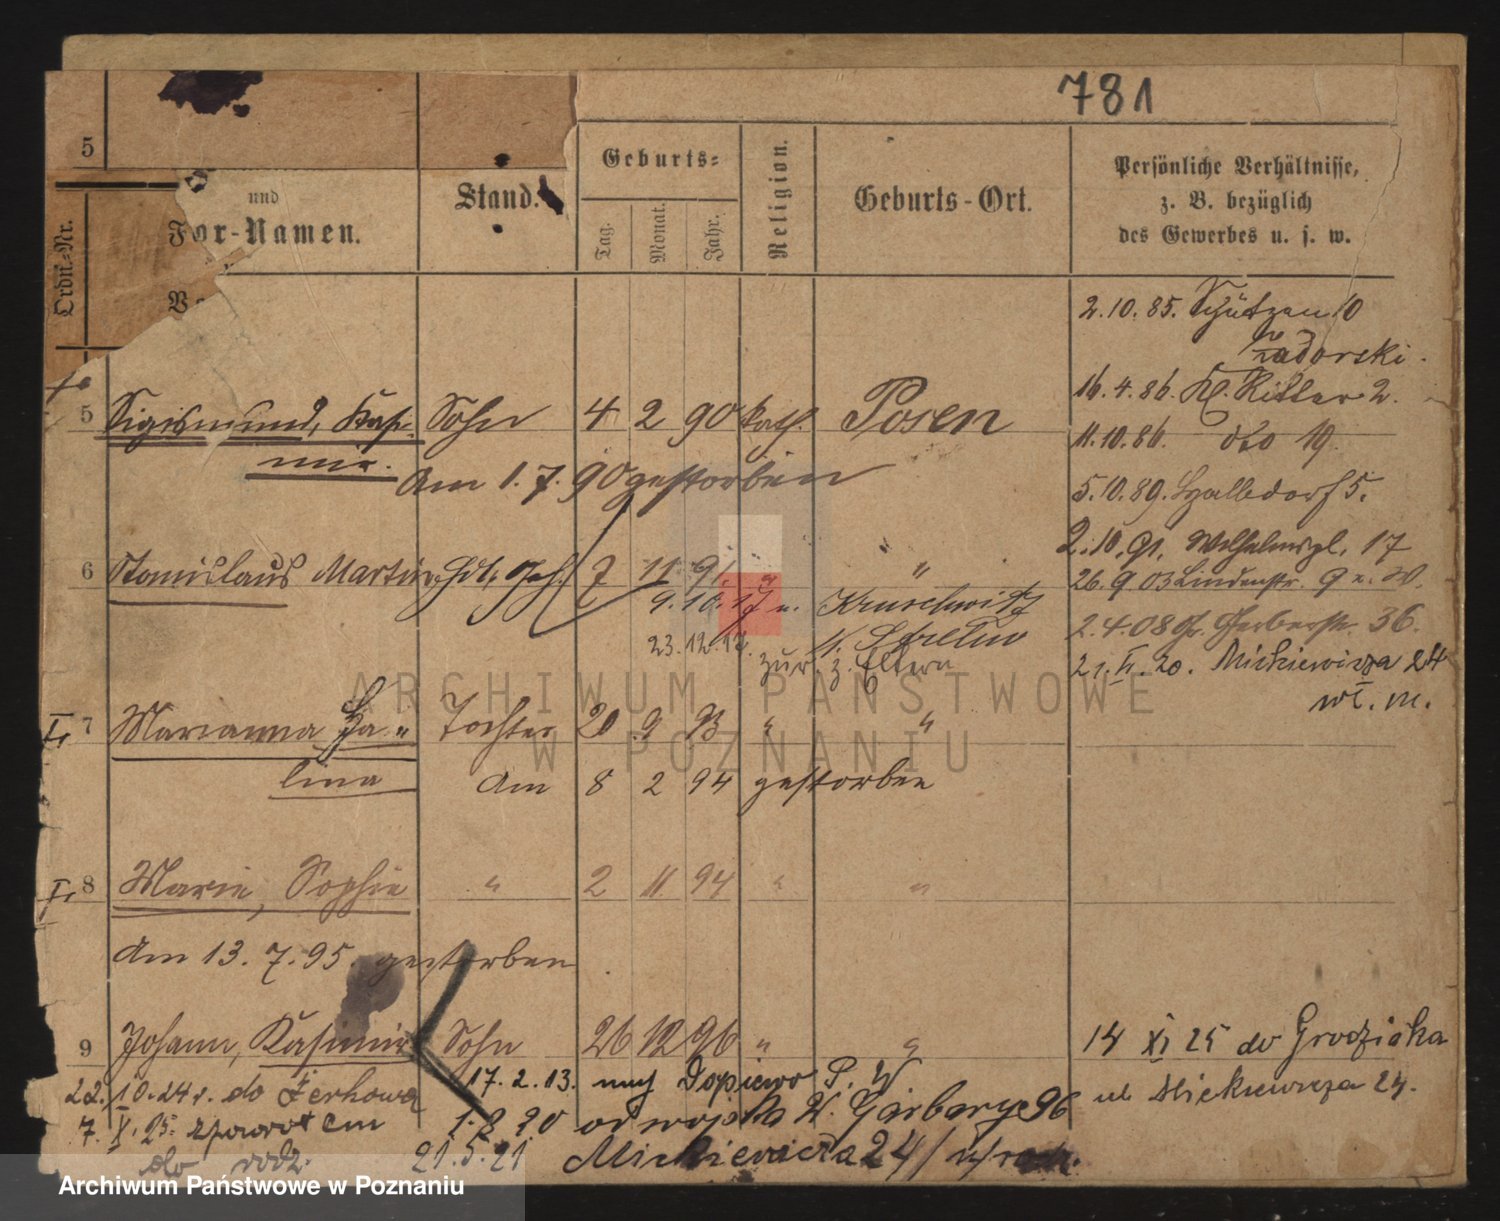 781
5
Ordn.-Nr.
und
Vor-Namen.
Stand.
Geburts-
Tag.
Monat.
Jahr.
Religion.
Geburts-Ort.
Persönliche Verhältnisse,
z. B. bezüglich
des Gewerbes u. s. w.
2.10.85. Schützen 10
Zadorski.
16.4.86. Kl. Ritter 2.
11.10.86. dto 19.
5.10.89. Halbdorf 5.
2.10.91. Wilhelmspl. 17
26.9.03 Lindenstr. 9
2.4.08 Gr. Gerberstr. 36.
21. 20. Mickiewicza 24
5 Sigismund, Kasi- Sohn 4 2 90 kath. Posen
mir.
Am 1.7.90 gestorben
6 Stanislaus Martin, 7 11 91 "
9.10.17 n. Kruschwitz
23.12.12. n. Strelno
zur. z. Eltern
7 Marianna Ha- Tochter 20 9 93 " "
lina Am 8 2 94 gestorben
8 Marie, Sophie " 2 11 94 " "
Am 13.7.95. gestorben
9 Johann, Kasimir Sohn 26 12 96 " "
14 XI 25 do Grodziska
ul. Mickiewicza 24.
17.2.13. nach Dopiewo P. W.
22.10.24 r. do Żerkowa
1.8 20 od wojska W. Garbary 96
7. X. 25. z powrotem
do rodz.
21.5.21 Mickiewicza 24
ARCHIWUM PAŃSTWOWE
W POZNANIU
Archiwum Państwowe w Poznaniu